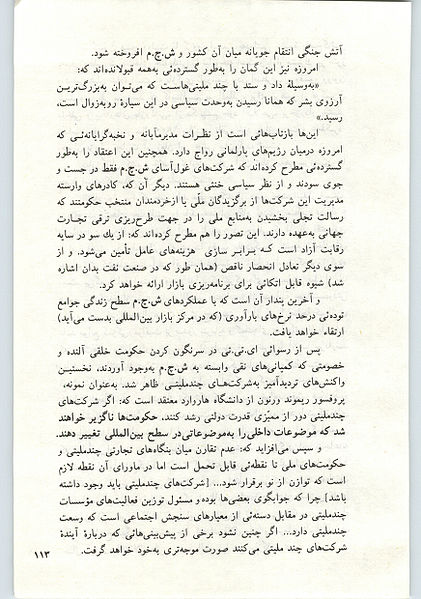 آتش جنگی انتقام جویانه میان آن کشور و ش.چ.م افروخته شود.
امروزه نیز این گمان را به‌طور گسترده‌ئی به‌همه قبولانده‌اند که:
«به‌وسیلهٔ داد و ستد با چند ملیتی‌هاست که می‌توان به‌بزرگ‌ترین
آرزوی بشر که همانا رسیدن به‌وحدت سیاسی در این سیارهٔ روبه‌زوال است،
رسید.»
این‌ها بازتاب‌هائی است از نظرات مدیرمآبانه و نخبه‌گرایانه‌ئی که
امروزه درمیان رژیم‌های پارلمانی رواج دارد. همچنین این اعتقاد را به‌طور
گسترده‌ئی مطرح کرده‌اند که شرکت‌های غول‌آسای ش.چ.م فقط در جست و
جوی سودند و از نظر سیاسی خنثی هستند. دیگر آن که، کادرهای وارسته
مدیریت این شرکت‌ها از برگزیدگان ملّی یا ازخردمندان منتخب حکومتند که
رسالت تجلی بخشیدن به‌منابع ملی را در جهت طرح‌ریزی ترقی تجارت
جهانی به‌عهده دارند. این تصور را هم مطرح کرده‌اند که: از یك سو در سایه
رقابت آزاد است کـه بـرابـر سازی هزینه‌های عامل تأمین می‌شود. و از
سوی دیگر تعادل انحصار ناقص (همان طور که در صنعت نفت بدان اشاره
شد) شیوه قابل اتکائی برای برنامه‌ریزی بازار ارائه خواهد کرد.
و آخرین پندار آن است که با عملکردهای ش.چ.م سطح زندگی جوامع
توده‌ئی درحد نرخ‌های بارآوری (که در مرکز بازار بین‌المللی بدست می‌آید)
ارتقاء خواهد یافت.
پس از رسوائی ای.تی.تی در سرنگون کردن حکومت خلقی آلنده و
خصومتی که کمپانی‌های نفی وابسته به ش.چ.م به‌وجود آوردند، نخستیـن
واکنش‌های تردیدآمیز به‌شرکت‌هـای چندملیتـی ظاهر شد. به‌عنوان نمونه،
پروفسور ریموند ورنون از دانشگاه هاروارد معتقد است که: اگر شرکت‌های
چندملیتی دور از ممیّزی قدرت دولتی رشد کنند، حکومت‌ها ناگزیر خواهند
شد که موضوعات داخلی‌را به‌موضوعاتی‌در سطح بین‌المللی تغییر دهند.
و سپس می‌افزاید که: عدم تقارن میان بنگاه‌های تجارتی چندملیتی و
حکومت‌های ملی تا نقطه‌ئی قابل تحمل است اما در ماورای آن نقطه لازم
است که توازن از نو برقرار شود... [شرکت‌های چندملیتی باید وجود داشته
باشد] چرا که جوابگوی بعضی‌ها بوده‌و مسئول توزین فعالیت‌های مؤسسات
چندملیتی در مقابل دسته‌ئی از معیارهای سنجش اجتماعی است که وسعت
چندملیتی دارد... اگر چنین نشود برخی از پیش‌بینی‌هائی که دربارهٔ آیندهٔ
شرکت‌های چند ملیتی می‌کنند صورت موجه‌تری به‌خود خواهد گرفت.
۱۱۳